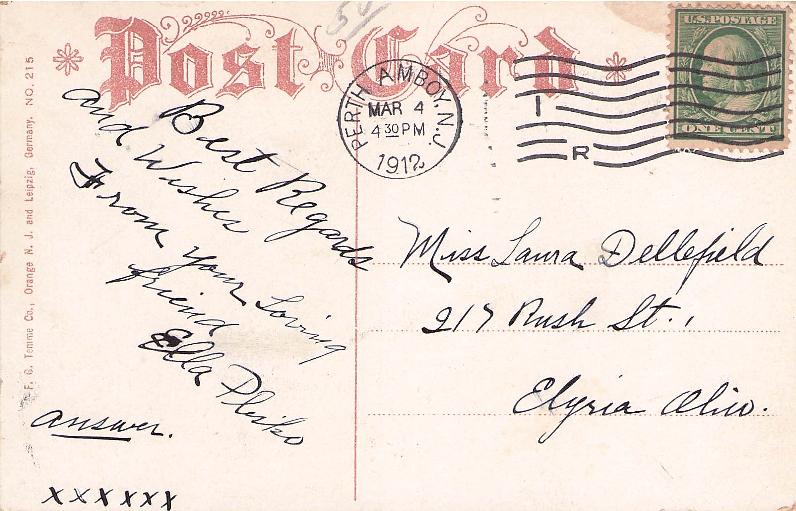 54
Post Card
U.S. POSTAGE
ONE CENT
PERTH AMBOY, N.J.
MAR 4
4 30 PM
1912
I
R
F. G. Temme Co., Orange N. J. and Leipzig, Germany. NO. 215
Best Regards
and Wishes
From your Loving
friend
Ella
answer.
xxxxxx
Miss Laura Dellefield
217 Rush St.,
Elyria Ohio.